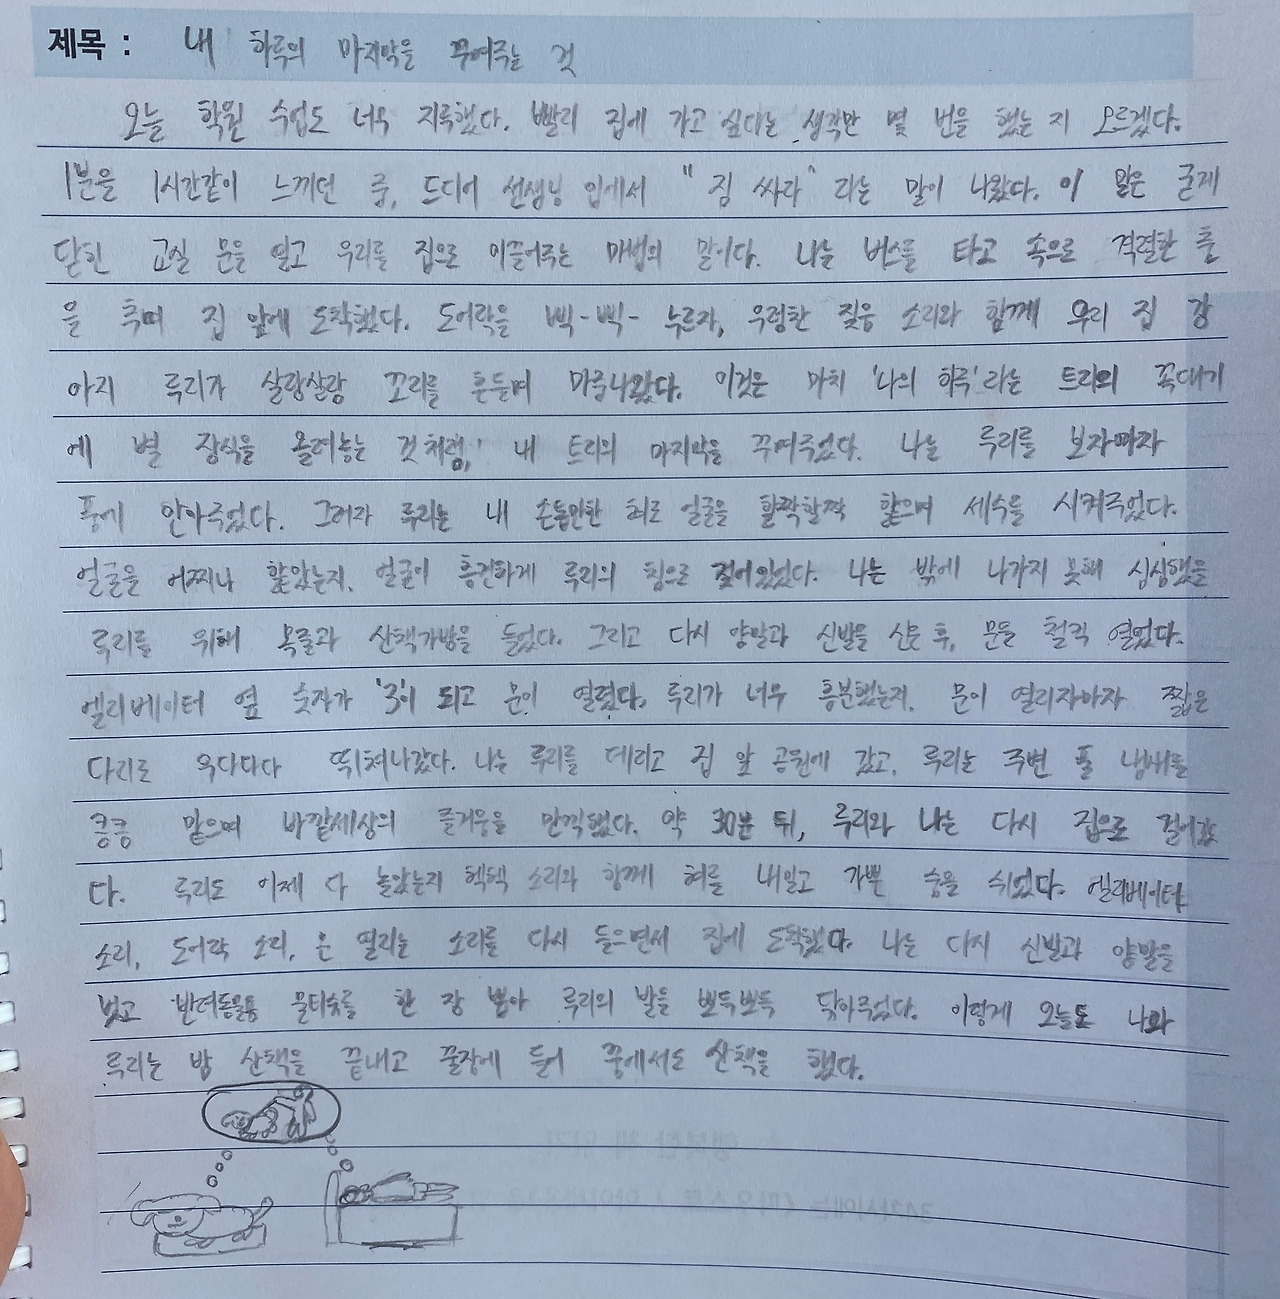 제목 : 내 하루의 마지막을 꾸며주는 것
오늘 학원 수업도 너무 지루했다. 빨리 집에 가고 싶다는 생각만 몇 번을 했는 지 모르겠다.
1분을 1시간같이 느끼던 중, 드디어 선생님 입에서 "짐 싸라" 라는 말이 나왔다. 이 말은 굳게
닫힌 교실 문을 열고 우리를 집으로 이끌어주는 마법의 말이다. 나는 버스를 타고 속으로 격렬한 춤
을 추며 집 앞에 도착했다. 도어락을 삑-삑- 누르자, 우렁찬 짖음 소리와 함께 우리 집 강
아지 루리가 살랑살랑 꼬리를 흔들며 마중나왔다. 이것은 마치 '나의 하루'라는 트리의 꼭대기
에 별 장식을 올려놓는 것처럼, 내 트리의 마지막을 꾸며주었다. 나는 루리를 보자마자
품에 안아주었다. 그러자 루리는 내 손톱만한 혀로 얼굴을 할짝할짝 핥으며 세수를 시켜주었다.
얼굴을 어찌나 핥았는지, 얼굴이 흥건하게 루리의 침으로 젖어있었다. 나는 밖에 나가지 못해 심심했을
루리를 위해 목줄과 산책가방을 들었다. 그리고 다시 양말과 신발을 신은 후, 문을 철컥 열었다.
엘리베이터 옆 숫자가 '3'이 되고 문이 열렸다. 루리가 너무 흥분했는지, 문이 열리자마자 짧은
다리로 우다다다 뛰쳐나갔다. 나는 루리를 데리고 집 앞 공원에 갔고, 루리는 주변 풀 냄새를
킁킁 맡으며 바깥세상의 즐거움을 만끽했다. 약 30분 뒤, 루리와 나는 다시 집으로 걸어갔
다. 루리도 이제 다 놀았는지 헥헥 소리와 함께 혀를 내밀고 가쁜 숨을 쉬었다. 엘리베이터
소리, 도어락 소리, 문 열리는 소리를 다시 들으면서 집에 도착했다. 나는 다시 신발과 양말을
벗고 반려동물용 물티슈를 한 장 뽑아 루리의 발을 뽀득뽀득 닦아주었다. 이렇게 오늘도 나와
루리는 밤 산책을 끝내고 꿀잠에 들어 꿈에서도 산책을 했다.